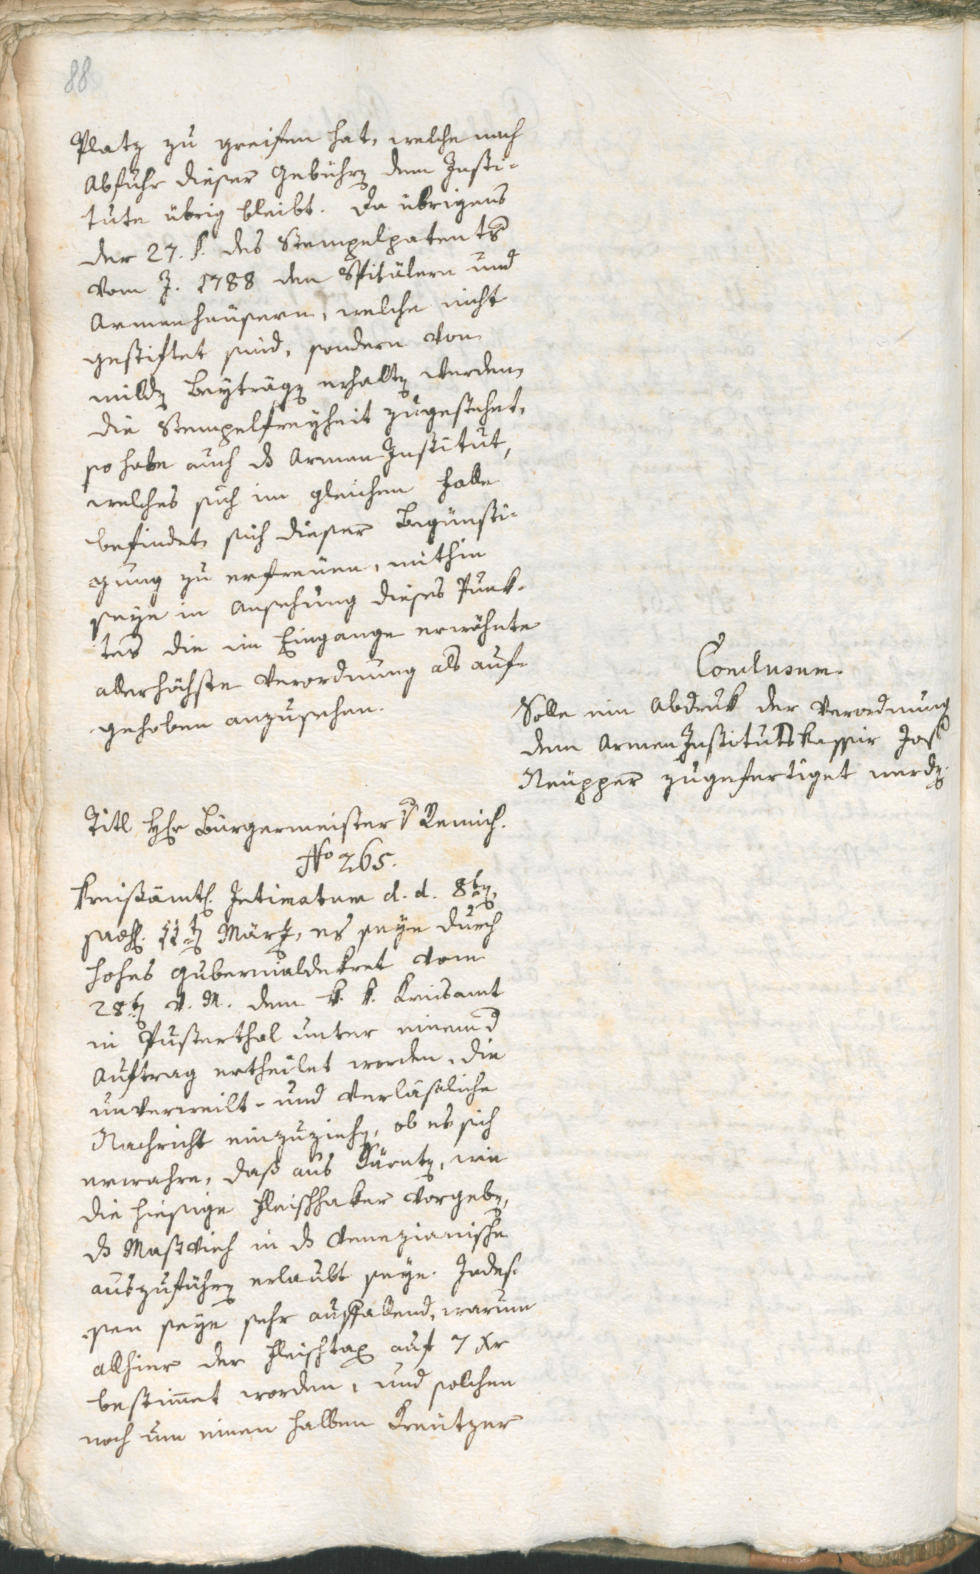 88
Platz zu greifen hat, welche nach
Abfuhr dieser Gebühr dem Insti-
tute übrig bleibt. Da übrigens
der 27. §. des Stempelpatents
vom J. 1788 den Spitälern und
Armenhäusern, welche nicht
gestiftet sind, sondern von
milden Beyträgen erhalten werden,
die Stempelfreyheit zugestehet,
so habe auch das Armen Institut,
welches sich im gleichen Falle
befindet, sich dieser Begünsti-
gung zu erfreuen, mithin
seye in Ansehung dieses Punk-
tes die im Eingange erwähnte
allerhöchste Verordnung als auf-
gehoben anzusehen.
Conclusum.
Solle ein Abdruk der Verordnung
dem Armen Instituts Kassir Jos
Neupper zugefertiget werden.
Titl Hr Bürgermeister v Remich.
No 265.
Kreisämtl. Intimatum d. d. 8ten,
11ten März, es seye durch
hohes Gubernialdekret vom
28ten v. M. dem k. k. Kreisamt
in Pusterthal unter einem d
Auftrag ertheilet worden, die
unverweilt- und verläsliche
Nachricht einzuziehen, ob es sich
erwahre, daß aus Kärnten, wie
die hiesige Fleischhaker vorgeben,
das Mastvieh in das Venezianische
auszuführen erlaubt seye. Indes-
sen seye sehr auffallend, warum
allhier der Fleischtax auf 7 Xr
bestimet worden, und solchen
noch um einen halben Kreutzer